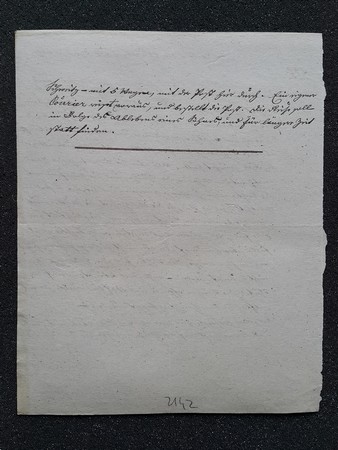 Schweitz – mit 5 Wagen, mit der Post hier durch. Ein eigener
Courier reist voraus, und bestellt die Post. Die Reise solle
in Folge des Ablebens eines Sohnes, und für längere Zeit
statt finden.
2142